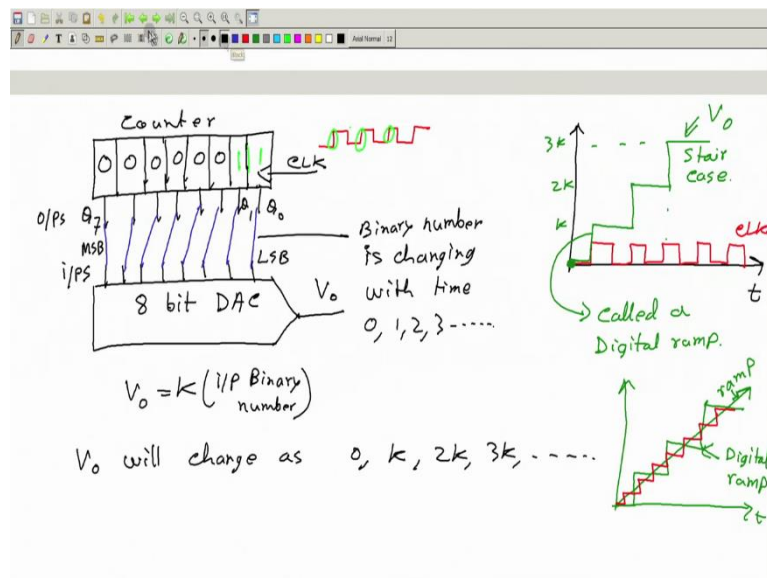 Arial Normal 12
Black
Counter
0 0 0 0 0 0 1 1
CLK
O/Ps Q7 Q1 Q0
MSB
LSB
i/Ps
8 bit DAC
Vo
Binary number
is changing
with time
0, 1, 2, 3-----
Vo = K (i/p Binary
number)
Vo will change as 0, K, 2K, 3K, -----
3K
2K
K
Vo
Stair
case.
CLK
t
Called a
Digital ramp.
ramp
Digital
ramp
t